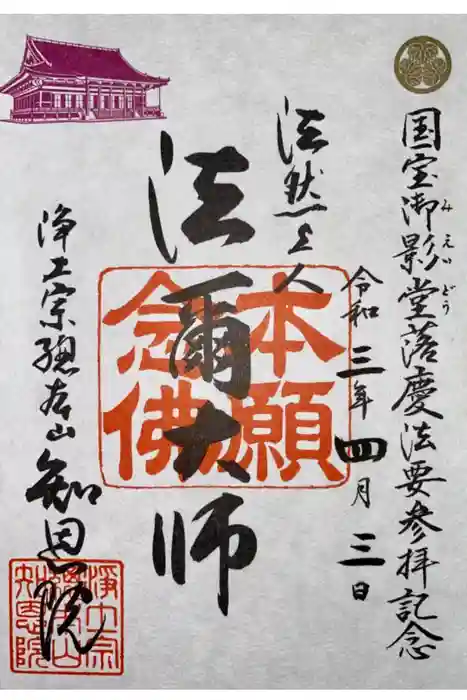 国宝御影堂落慶法要参拝記念
みえいどう
令和三年四月三日
法然上人
法爾大師
本願
念佛
浄土宗總本山
知恩院
浄土宗
總本山
知恩院